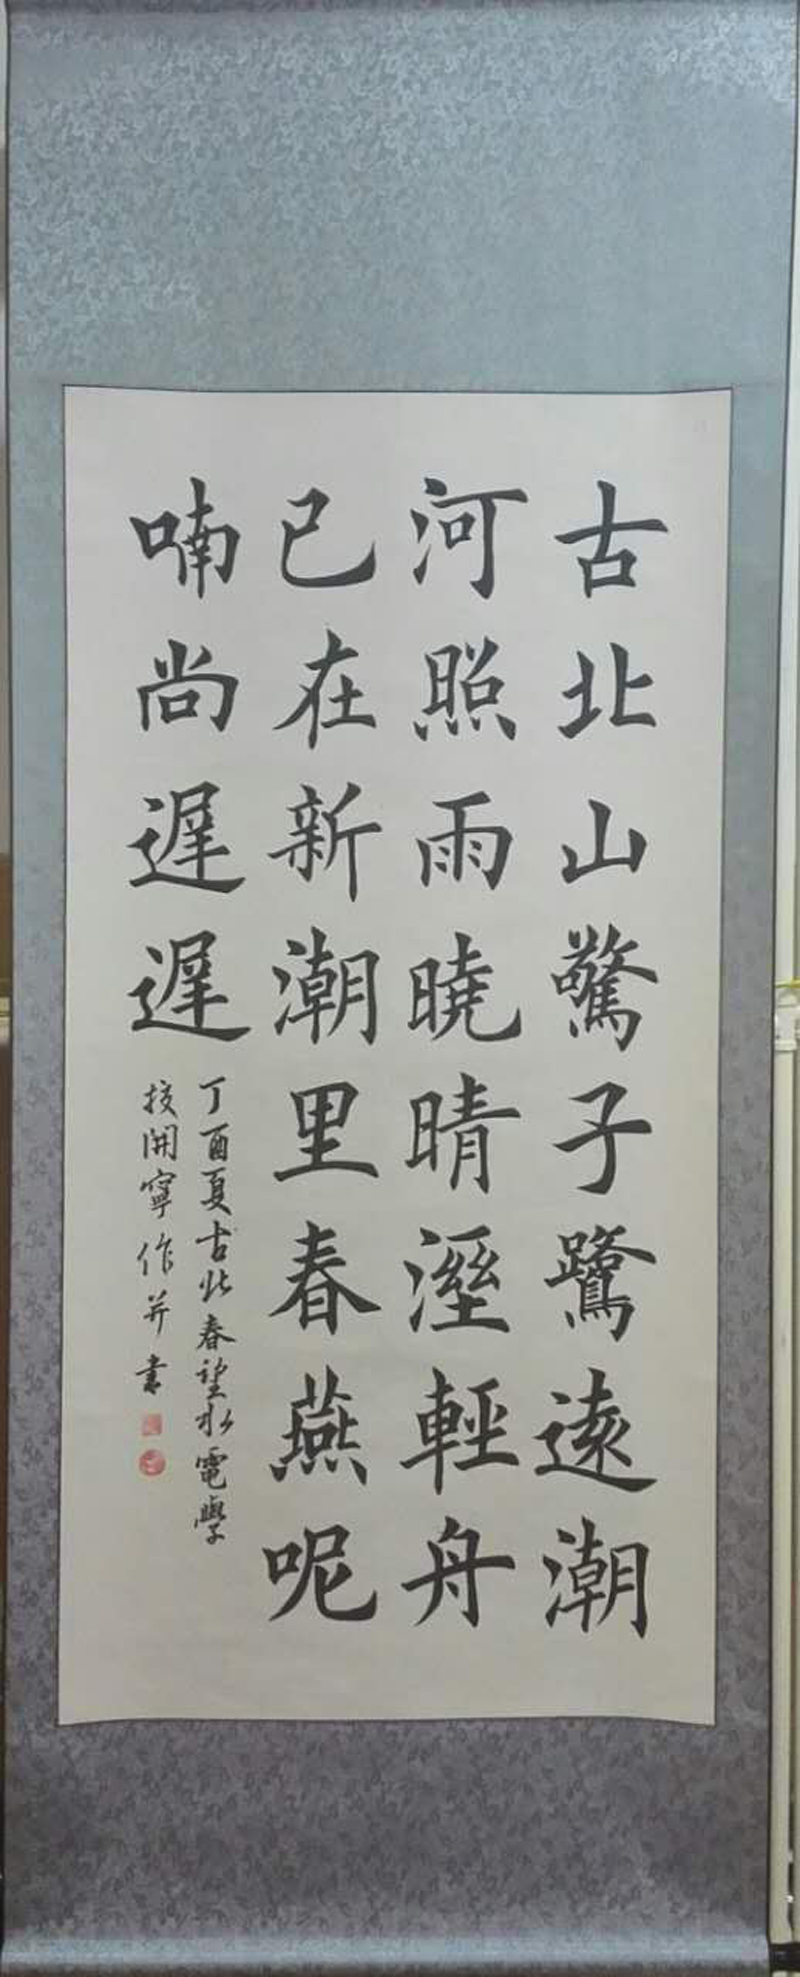 古北山驚子鷺遠潮
河照雨曉晴溼輕舟
已在新潮里春燕呢
喃尚遲遲
丁酉夏古北春望水電學
校開寧作并書